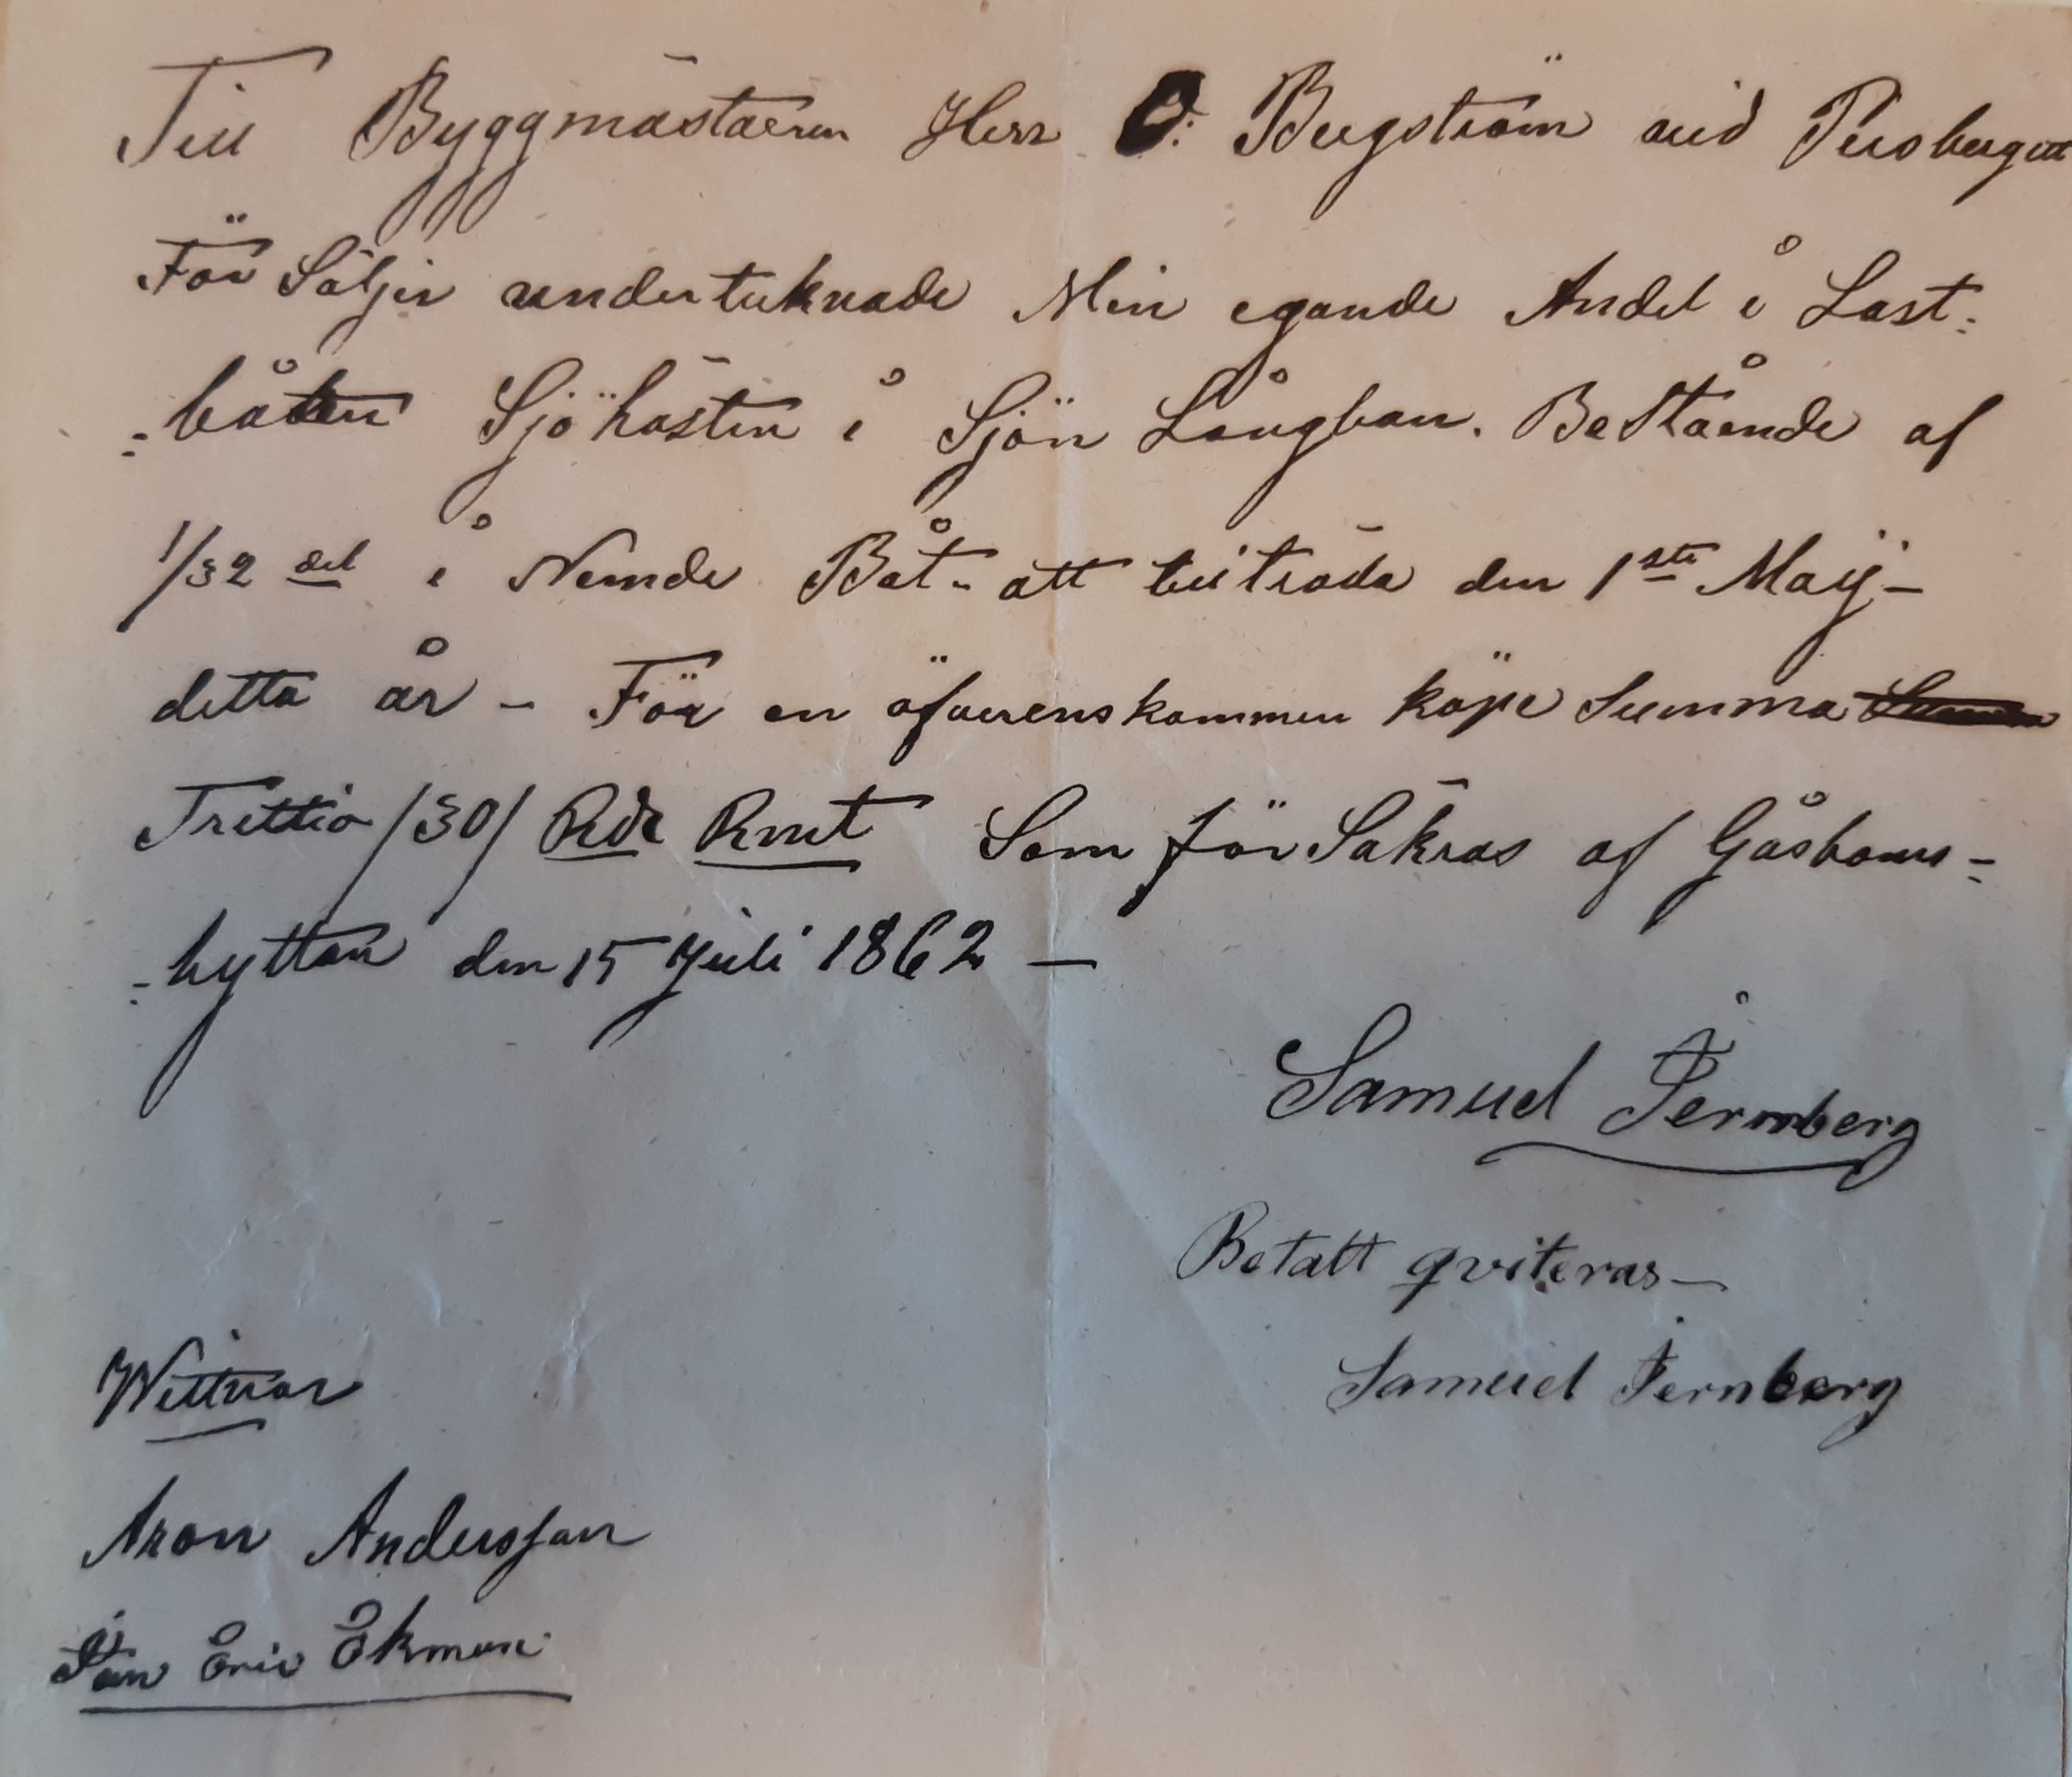 Till Byggmästaren Herr O: Bergström vid Persberget
För Säljer undertecknade Min egande Andel i Last-
-båten Sjöhästen i Sjön Långban. BeStående af
1/32 del i Nemde Båt- att tilträda den 1sta Maÿ-
detta år - För en öfverenskommen köpe Summa
Trettio /30/ Rdr Rmt Som för Säkras af Gåsborns-
-hyttan den 15 Juli 1862 —
Samuel Jernberg
Betalt qviteras—
Samuel Jernberg
Wittnar
Aron Andersson
Jan Eric Ekman